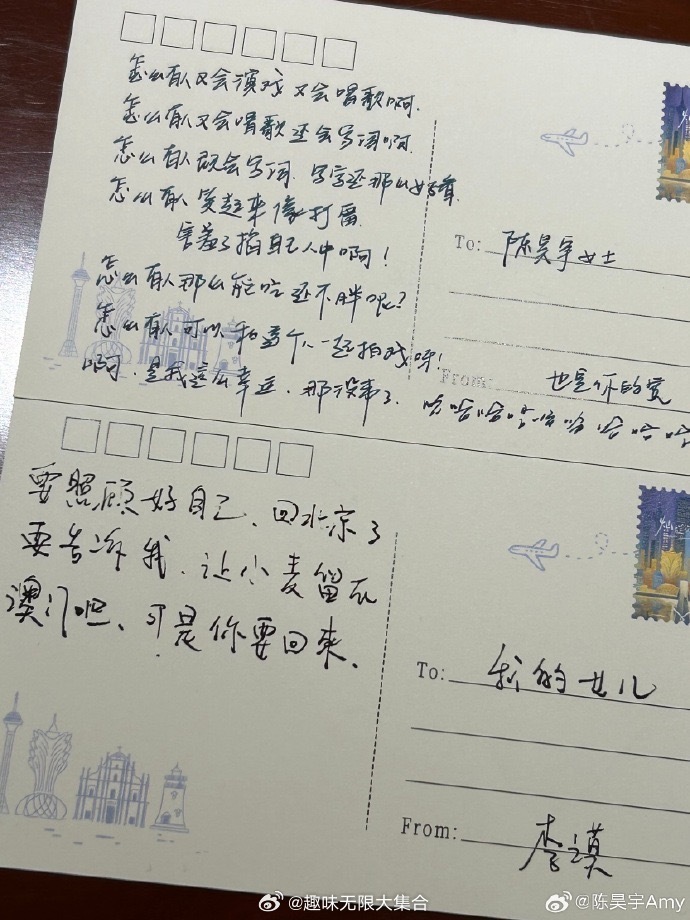 怎么有人又会演戏又会唱歌啊.
怎么有人又会唱歌还会写词啊.
怎么有人既会写词.写字还那么好看.
怎么有人笑起来像打雷
害羞了掐自己人中啊!
怎么有人那么能吃还不胖呢?
怎么有人可以和这个人一起拍戏呀!
啊.是我这么幸运.那没事了.哈哈哈哈哈哈哈哈哈哈
To: 陈昊宇女士
From: 也是你的宽
要照顾好自己、回北京了
要告诉我.让小麦留在
澳门吧、可是你要回来.
To: 我的女儿
From: 李谟
@趣味无限大集合
@陈昊宇Amy